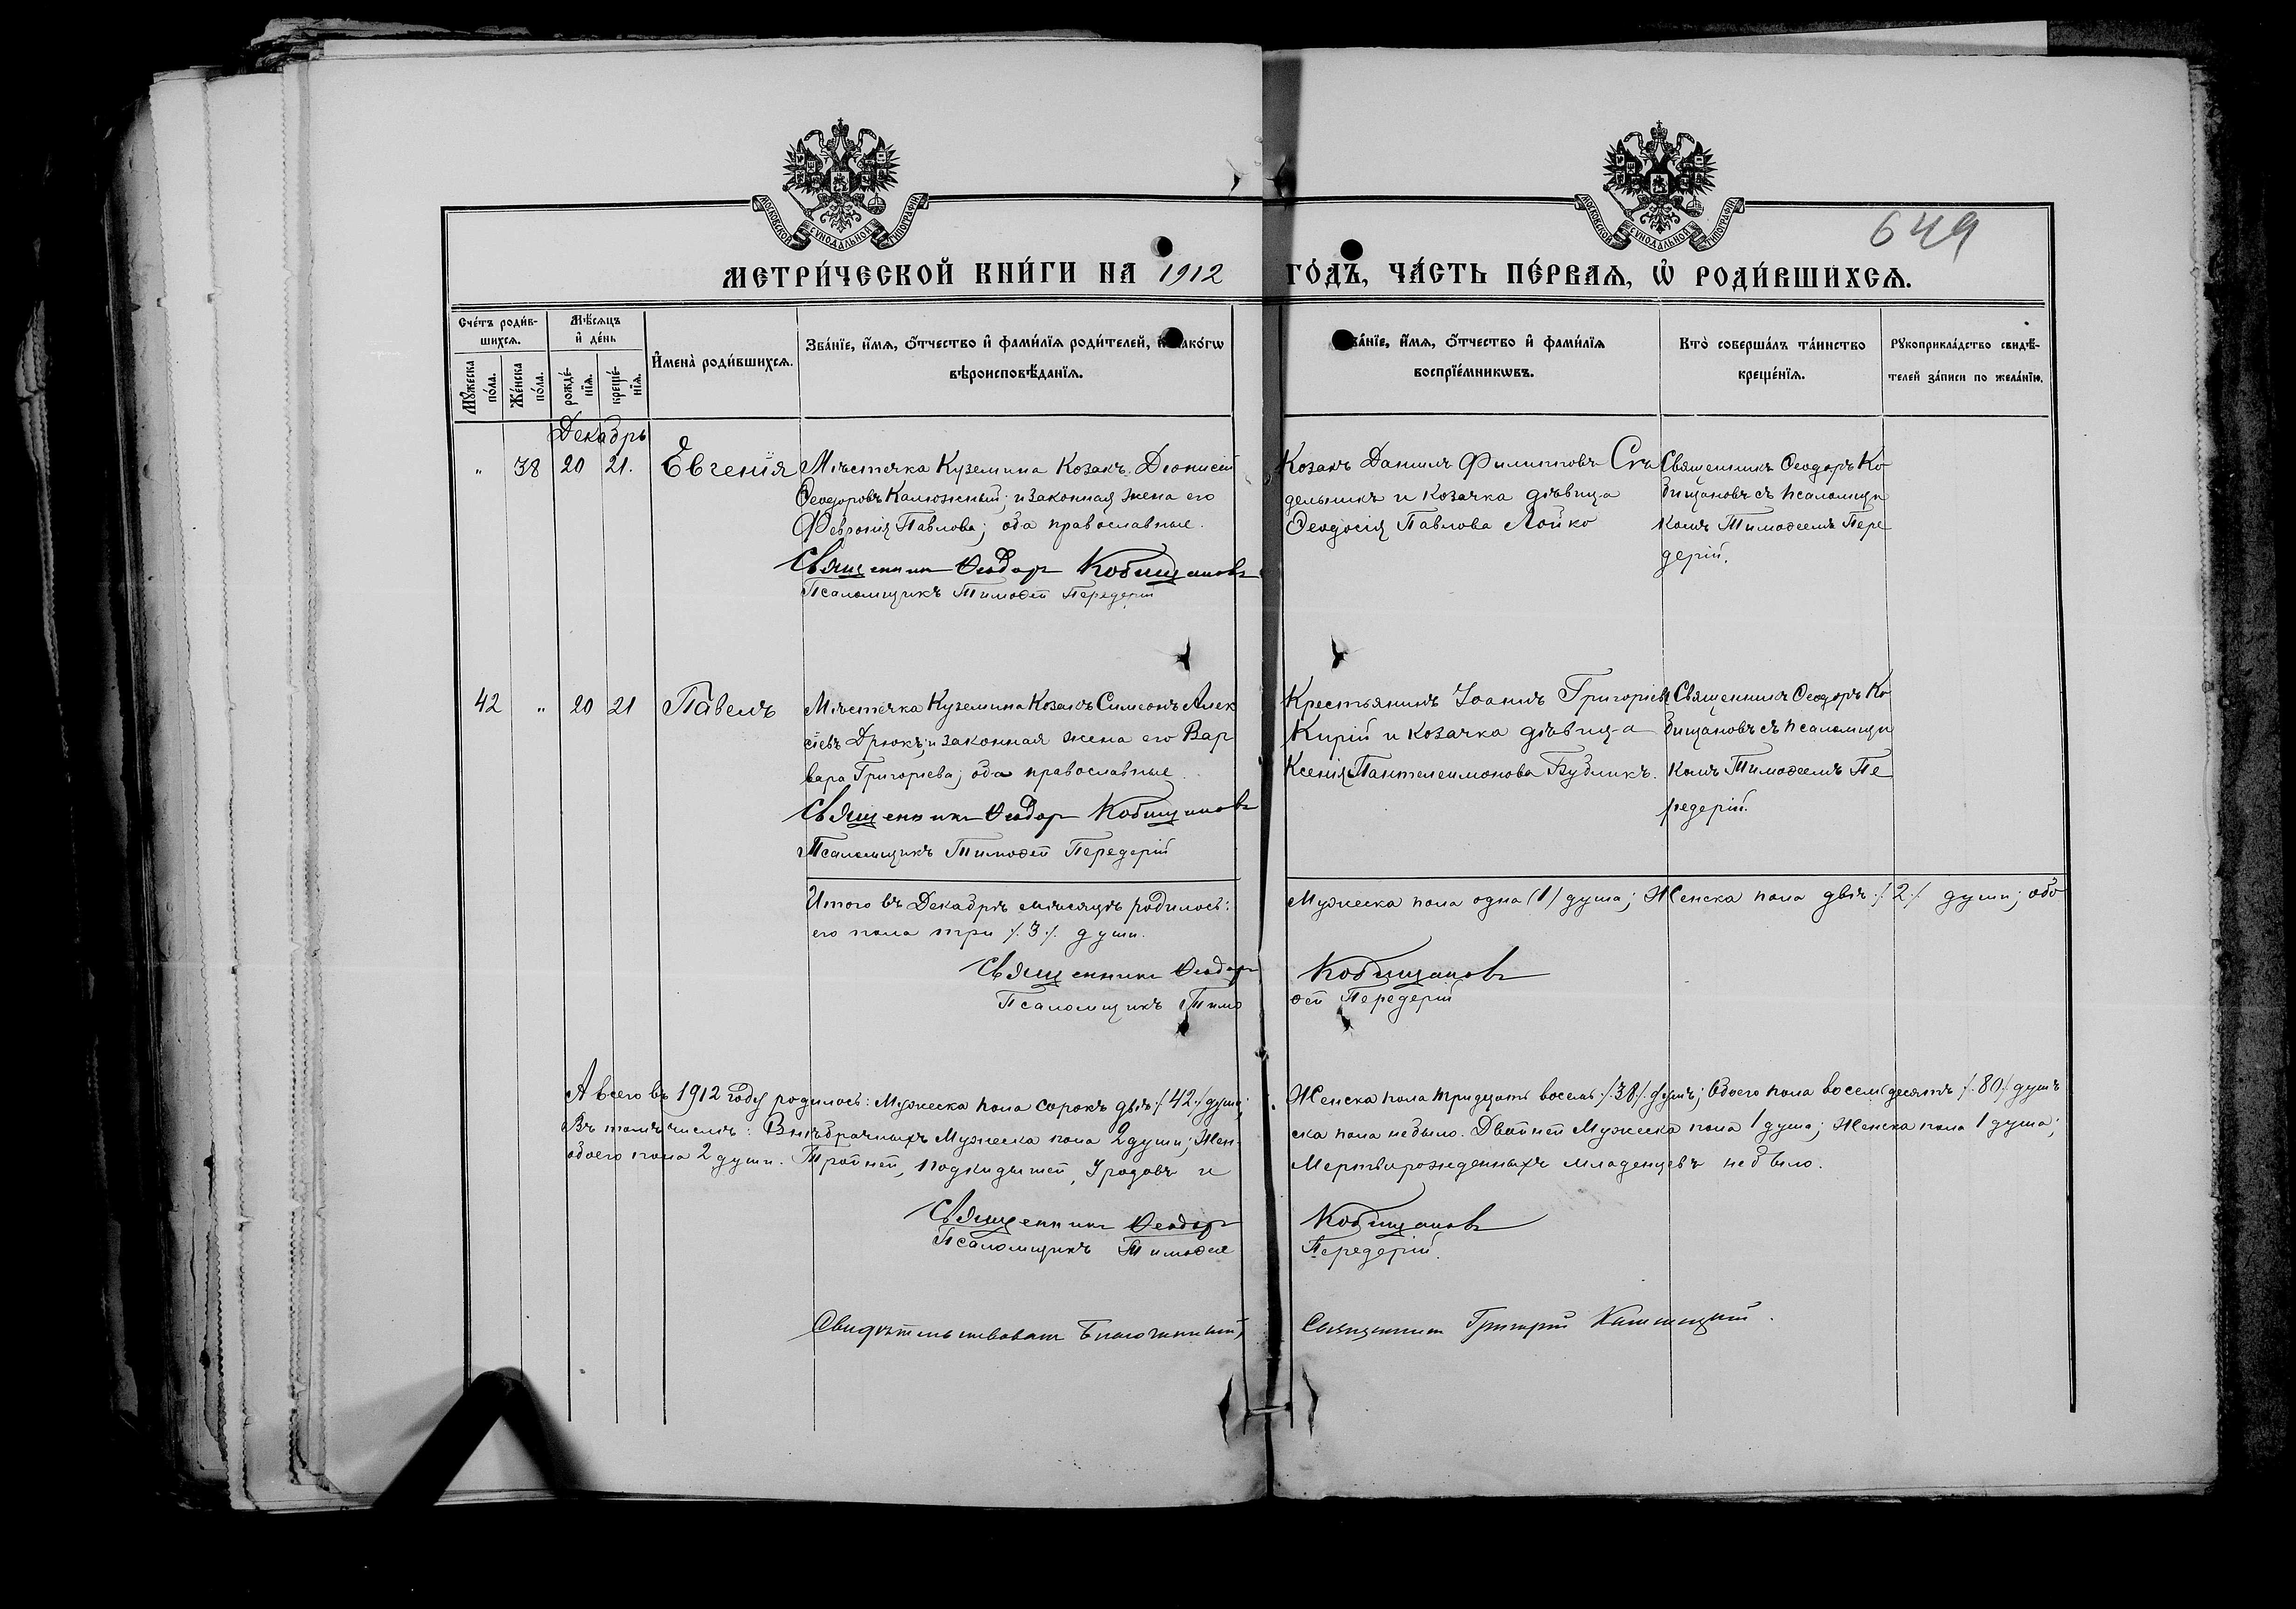 649
МОСКОВСКОЙ СѴНОДАЛЬНОЙ ТИПОГРАФІИ
МОСКОВСКОЙ СѴНОДАЛЬНОЙ ТИПОГРАФІИ
МЕТРИ́ЧЕСКОЙ КНИ́ГИ НА 1912 ГО́ДЪ, ЧА́СТЬ ПЕ́РВАѦ, Ѡ҆ РОДИ́ВШИХСѦ.
Сче́тъ роди́в-
шихсѧ.
Мꙋ́жеска по́ла.
Же́нска по́ла.
Мѣ́сѧцъ
и҆ де́нь
рожде́-
нїѧ.
креще́-
нїѧ.
И҆мена̀ роди́вшихсѧ.
Зва́нїе, и҆́мѧ, ѻ҆́тчество и҆ фами́лїѧ роди́телей, и҆ како́гѡ
вѣроисповѣ́данїѧ.
Зва́нїе, и҆́мѧ, ѻ҆́тчество и҆ фами́лїѧ
воспрїе́мникѡвъ.
Кто̀ соверша́лъ та́инство
креще́нїѧ.
Рꙋкоприкла́дство свидѣ́-
телей за́писи по жела́нїю.
Декабрь
" 38 20 21. Евгенія
Мѣстечка Куземина Козакъ Діонисій
Ѳеодоровъ Калюжный; и законная жена его
Февронія Павлова; оба православные.
Священникъ Ѳеодоръ Кобищановъ
Псаломщикъ Тимоѳей Передерій
Козакъ Даніилъ Филипповъ Стъ
дельникъ и козачка дѣвица
Ѳеодосія Павлова Лойко
Священникъ Ѳеодоръ Ко
бищановъ съ псаломщи
комъ Тимоѳеемъ Пере
дерій.
42 " 20 21 Павелъ
Мѣстечка Куземина Козакъ Симеонъ Алек
сіевъ Дрюкъ; и законная жена его Вар
вара Григоріева; оба православные.
Священникъ Ѳеодоръ Кобищановъ
Псаломщикъ Тимоѳей Передерій
Крестьянинъ Іоаннъ Григоріевъ
Кирій и козачка дѣвица
Ксенія Пантелеимонова Бубликъ.
Священникъ Ѳеодоръ Ко
бищановъ съ псаломщи
комъ Тимоѳеемъ Пе
редерій.
Итого въ Декабрѣ мѣсяцѣ родилось: Мужеска пола одна (1) душа; Женска пола двѣ ./.2./. души; обо
его пола три ./.3./. души.
Священникъ Ѳеодоръ Кобищановъ
Псаломщикъ Тимоѳей Передерій
А всего въ 1912 году родилось: Мужеска пола сорокъ двѣ ./.42./. души; Женска пола тридцать восемь ./.38./. душъ; Обоего пола восемьдесятъ ./.80./. душъ
Въ томъ числѣ: Внѣбрачныхъ Мужеска пола 2 души; Жен ска пола небыло. Двойней Мужеска пола 1 душа; Женска пола 1 душа;
обоего пола 2 души. Тройней, подкидышей, Уродовъ и Мертворожденныхъ младенцевъ небыло.
Священникъ Ѳеодоръ Кобищановъ
Псаломщикъ Тимоѳей Передерій.
Свидѣтельствовалъ Благочинный, Священникъ Григорій